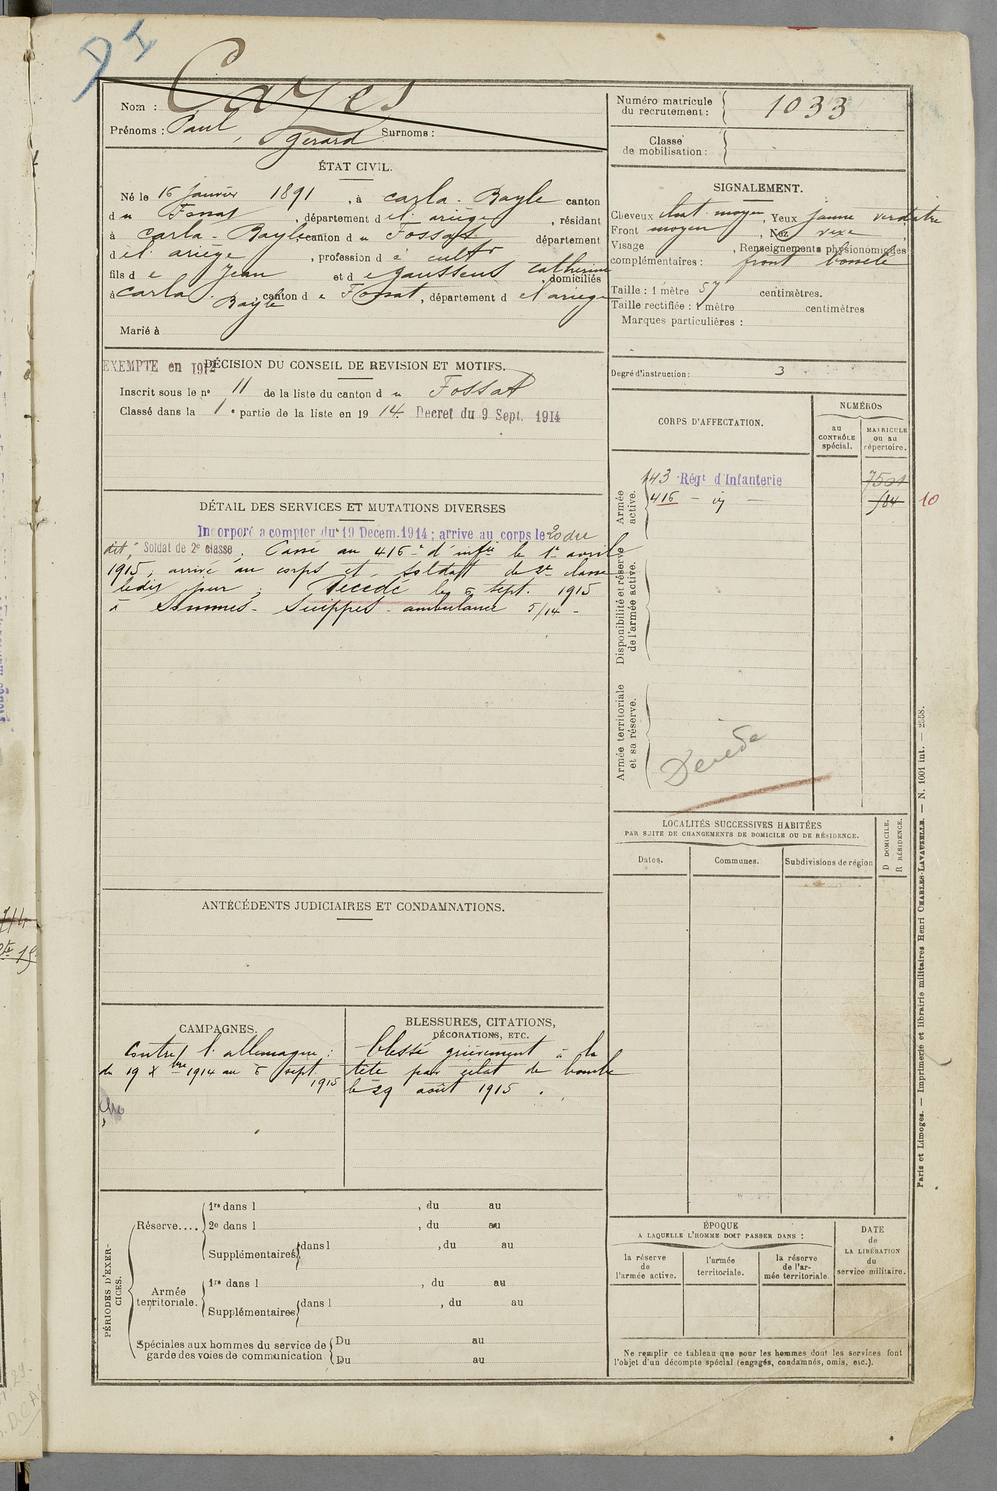 DI
Nom : Cazes
Prénoms : Paul, Gérard Surnoms :
ÉTAT CIVIL.
Né le 16 janvier 1891, à Carla-Bayle canton
du Fossat, département de l'ariège, résidant
à Carla-Bayle canton du Fossat département
de l'ariège, profession de cultr
fils de Jean et de Gaussens Catherine domiciliés
à Carla-Bayle canton de Fossat, département de l'ariège
Marié à
EXEMPTE en 1912 DÉCISION DU CONSEIL DE REVISION ET MOTIFS.
Inscrit sous le n° 11 de la liste du canton du Fossat
Classé dans la 1e partie de la liste en 1914. Decret du 9 Sept. 1914
DÉTAIL DES SERVICES ET MUTATIONS DIVERSES
Incorporé a compter du 19 Decem. 1914 ; arrive au corps le 20 du
dit, Soldat de 2e classe. Passé au 416e d'infie le 1er avril
1915, arrivé au corps et soldat de 2e classe
ledit jour ; Décédé le 5 sept. 1915
à Somme-Suippes - ambulance 5/14 -
ANTÉCÉDENTS JUDICIAIRES ET CONDAMNATIONS.
CAMPAGNES.
Contre l'allemagne :
du 19 Xbre 1914 au 5 sept.
1915
BLESSURES, CITATIONS,
DÉCORATIONS, ETC.
blessé grièvement à la
tête par éclat de bombe
le 29 août 1915.
PÉRIODES D'EXERCICES.
Réserve....
1re dans l , du au
2e dans l , du au
Supplémentaires dans l , du au
Armée territoriale.
1re dans l , du au
Supplémentaires dans l , du au
Spéciales aux hommes du service de garde des voies de communication
Du au
Du au
Numéro matricule du recrutement : 1033
Classe de mobilisation :
SIGNALEMENT.
Cheveux chat. moyen, Yeux jaune verdâtre
Front moyen, Nez vexe,
Visage , Renseignements physionomiques
complémentaires : front bombé
Taille : 1 mètre 57 centimètres.
Taille rectifiée : 1 mètre centimètres
Marques particulières :
Degré d'instruction : 3
CORPS D'AFFECTATION.
NUMÉROS
au CONTRÔLE spécial.
MATRICULE ou au répertoire.
Armée active.
143 Régt d'Infanterie 7501
416 - id - 10
Disponibilité et réserve de l'armée active.
Armée territoriale et sa réserve.
Décédé
LOCALITÉS SUCCESSIVES HABITÉES
PAR SUITE DE CHANGEMENTS DE DOMICILE OU DE RÉSIDENCE.
Dates. Communes. Subdivisions de région
D DOMICILE.
R RÉSIDENCE.
ÉPOQUE
A LAQUELLE L'HOMME DOIT PASSER DANS :
la réserve de l'armée active.
l'armée territoriale.
la réserve de l'armée territoriale.
DATE de LA LIBÉRATION du service militaire.
Ne remplir ce tableau que pour les hommes dont les services font
l'objet d'un décompte spécial (engagés, condamnés, omis, etc.).
Paris et Limoges. — Imprimerie et librairie militaires Henri CHARLES-LAVAUZELLE. — N. 1001 int. — 2558.